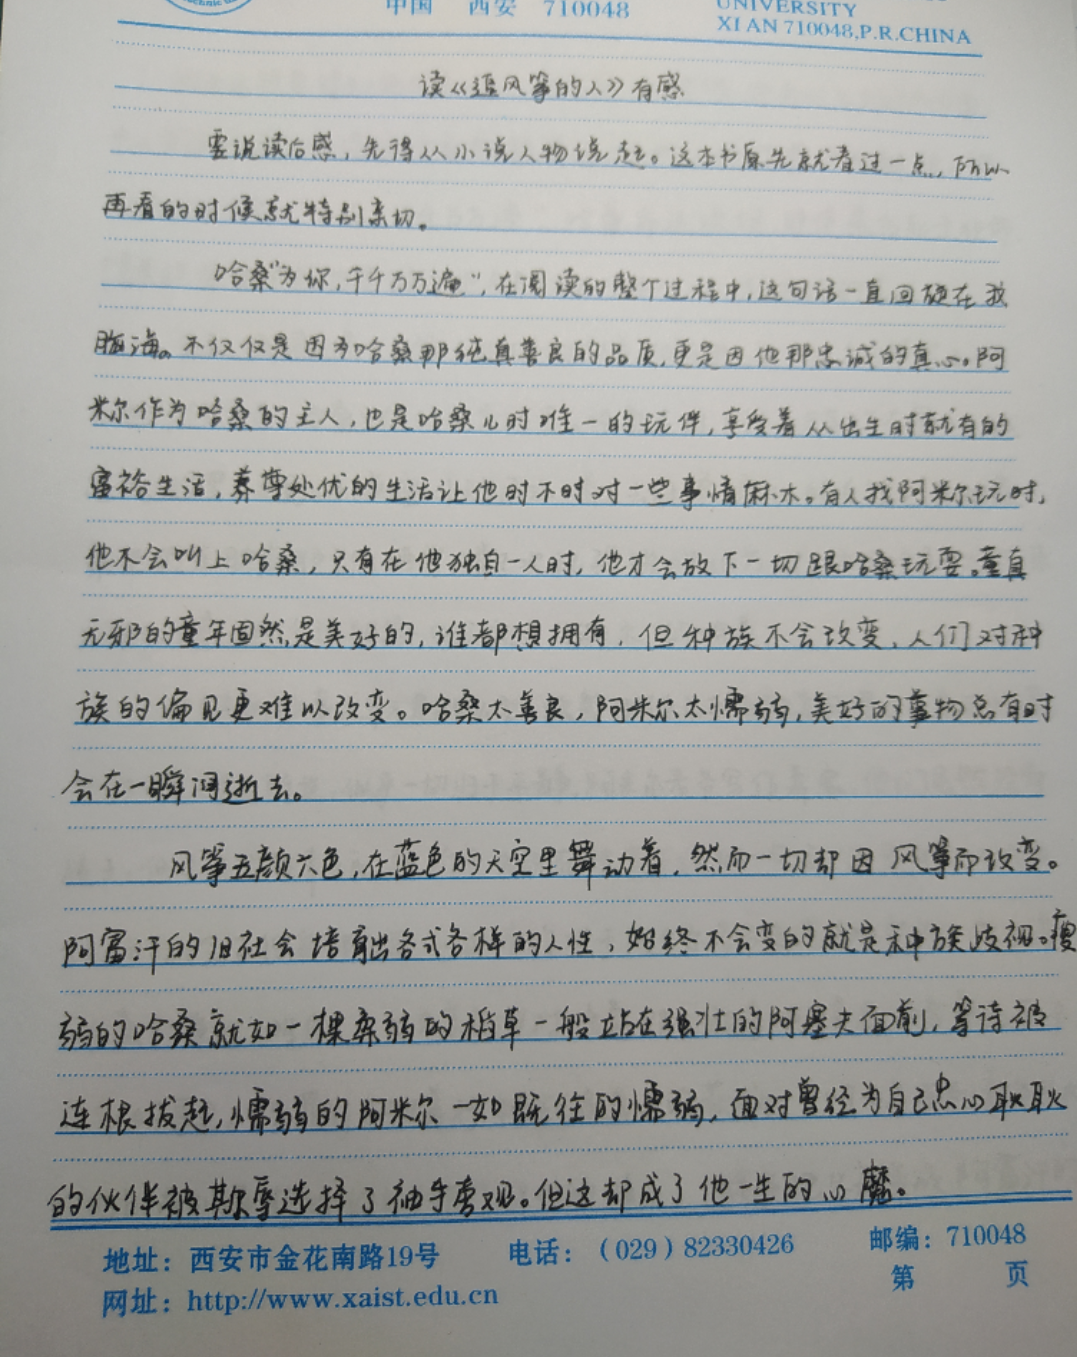 中国 西安 710048
UNIVERSITY
XI AN 710048,P.R.CHINA
读《追风筝的人》有感
要说读后感，先得从小说人物说起。这本书原先就看过一点，所以
再看的时候就特别亲切。
哈桑“为你，千千万万遍”，在阅读的整个过程中，这句话一直回旋在我
脑海。不仅仅是因为哈桑那纯真善良的品质，更是因他那忠诚的真心。阿
米尔作为哈桑的主人，也是哈桑儿时唯一的玩伴，享受着从出生时就有的
富裕生活，养尊处优的生活让他时不时对一些事情麻木。有人找阿米尔玩时，
他不会叫上哈桑，只有在他独自一人时，他才会放下一切跟哈桑玩耍。童真
无邪的童年固然是美好的，谁都想拥有，但种族不会改变，人们对种
族的偏见更难以改变。哈桑太善良，阿米尔太懦弱，美好的事物总有时
会在一瞬间逝去。
风筝五颜六色，在蓝色的天空里舞动着，然而一切却因风筝而改变。
阿富汗的旧社会培育出各式各样的人性，始终不会变的就是种族歧视。瘦
弱的哈桑就如一棵柔弱的稻草一般站在强壮的阿塞夫面前，等待被
连根拔起，懦弱的阿米尔一如既往的懦弱，面对曾经为自己忠心耿耿
的伙伴被欺辱选择了袖手旁观。但这却成了他一生的心魔。
地址：西安市金花南路19号 电话：（029）82330426 邮编：710048
网址：http://www.xaist.edu.cn 第 页